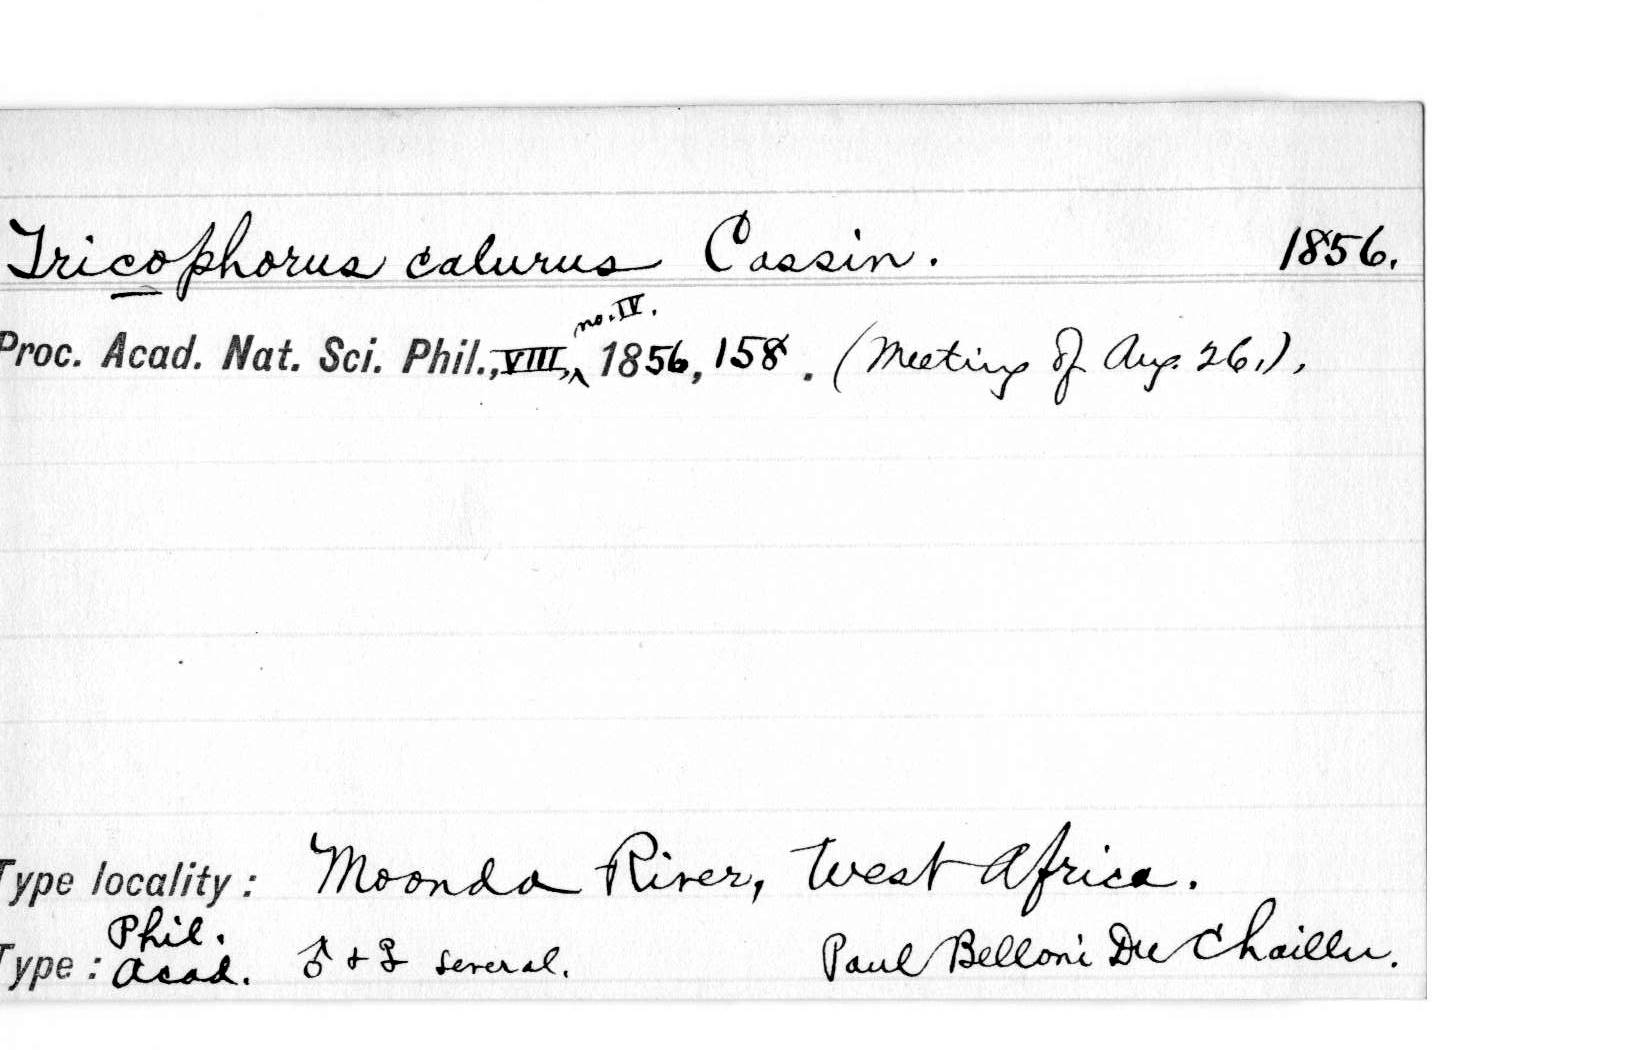 Tricophorus calurus Cassin. 1856.
no. IV.
Proc. Acad. Nat. Sci. Phil., VIII, ^ 1856, 158. (Meeting of Aug. 26,).
Type locality: Moonda River, West Africa.
Phil.
Type: Acad. ♂ + ♀ several. Paul Belloni Du Chaillu.